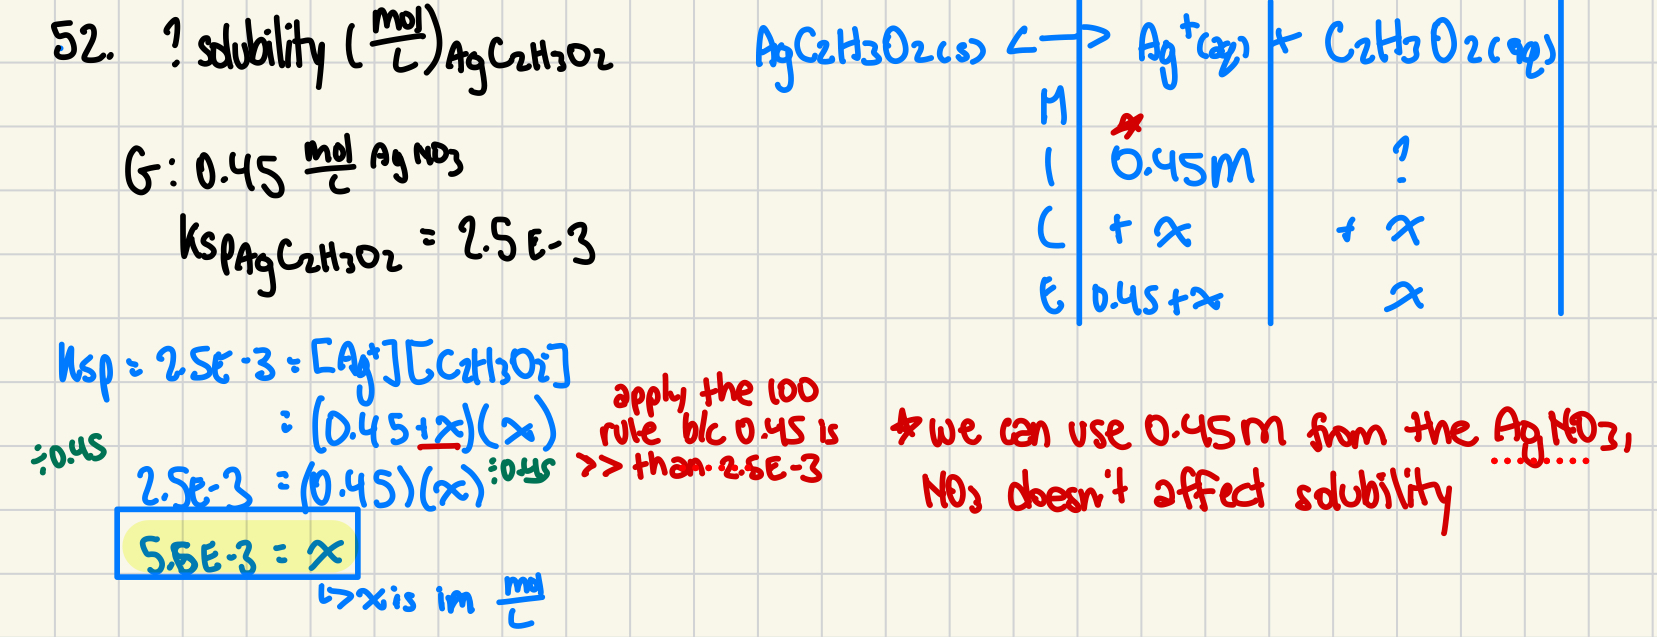 52. ? solubility (mol/L) AgC2H3O2
G: 0.45 mol/L AgNO3
Ksp AgC2H3O2 = 2.5E-3
AgC2H3O2(s) <-> Ag+(aq) + C2H3O2(aq)
M
I *0.45M ?
C + x + x
E 0.45+x x
Ksp = 2.5E-3 = [Ag+][C2H3O2-]
= (0.45+x)(x)
÷0.45 2.5E-3 = (0.45)(x) ÷0.45
5.6E-3 = x
↳ x is in mol/L
apply the 100
rule b/c 0.45 is
>> than 2.5E-3
* we can use 0.45M from the AgNO3,
NO3 doesn't affect solubility